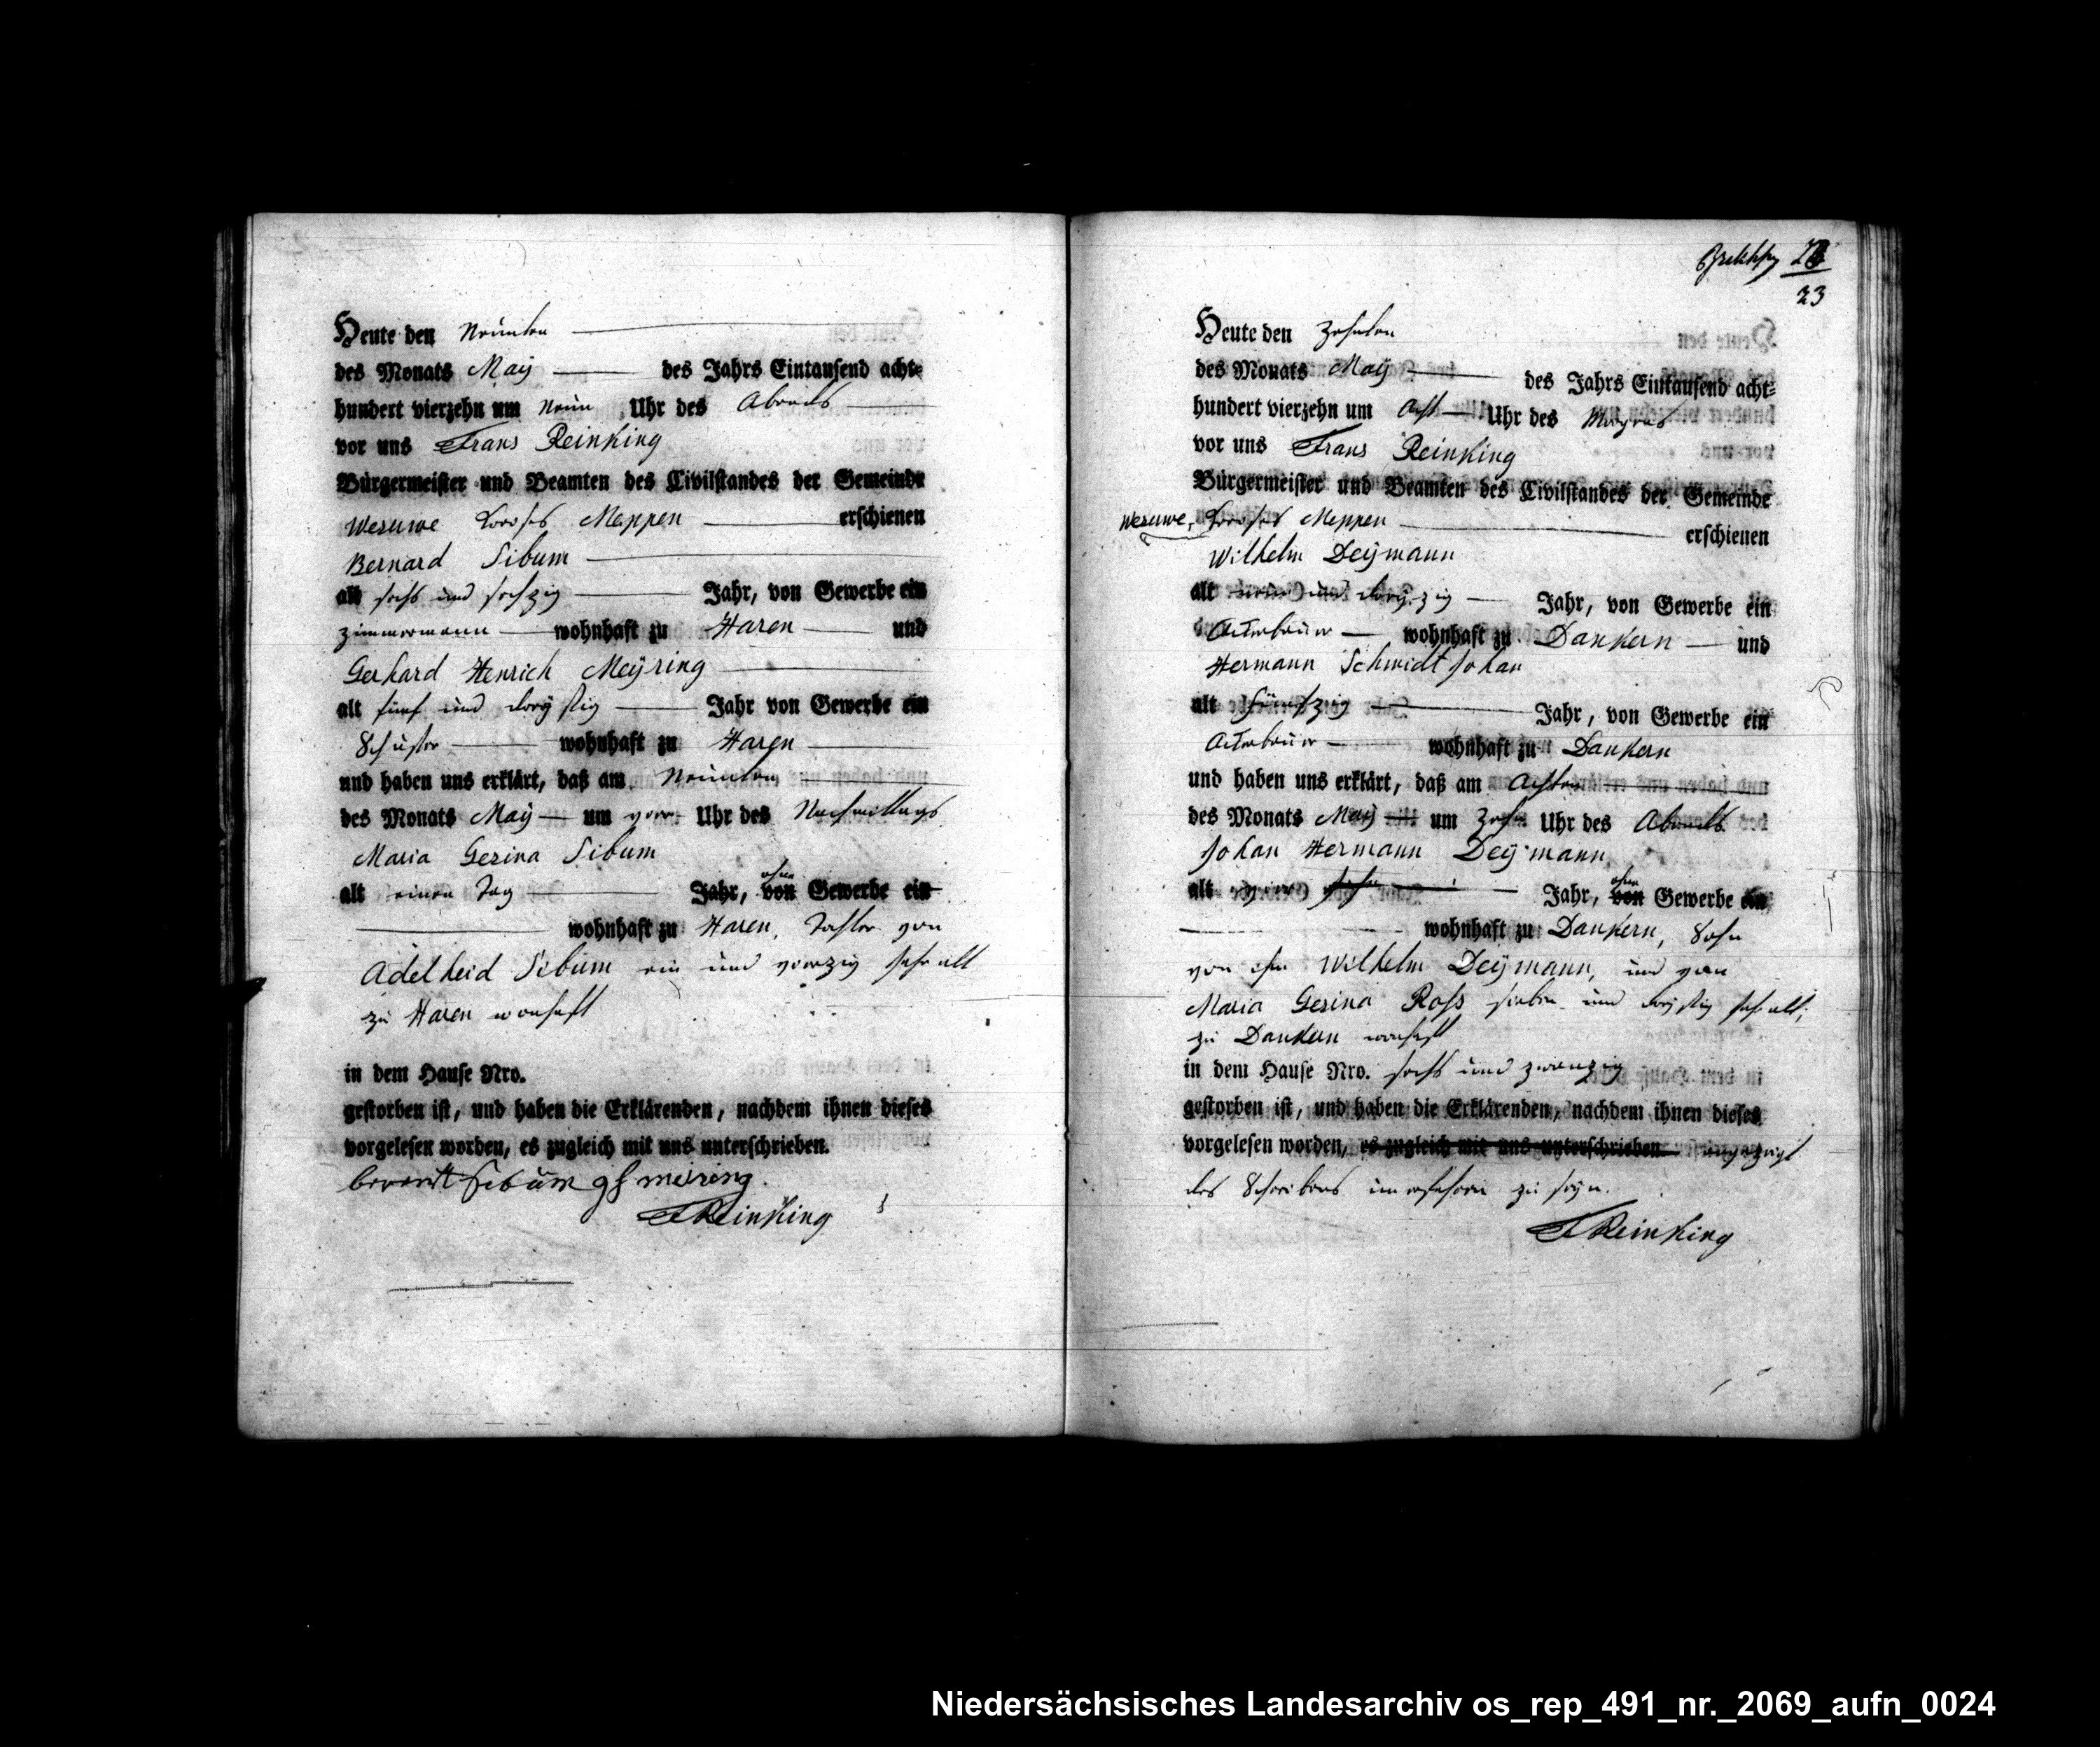 Heute den Neunten
des Monats Maÿ des Jahrs Eintausend acht-
hundert vierzehn um Neun Uhr des Abends
vor uns Frans Reinking
Bürgermeister und Beamten des Civilstandes der Gemeinde
Wesuwe Meppen erschienen
Bernard Sibum
alt sechs und sechzig Jahr, von Gewerbe ein
Zimmermann wohnhaft zu Haren und
Gerhard Henrich Meÿring
alt fünf und dreÿstig Jahr von Gewerbe ein
Schuster wohnhaft zu Haren
und haben uns erklärt, daß am Neunten
des Monats Maÿ um vier Uhr des Nachmittags
Maria Gesina Sibum
alt einen Tag Jahr, von ohne Gewerbe ein
wohnhaft zu Haren, Tochter von
Adelheid Sibum ein und vierzig Jahr alt
zu Haren wonhaft
in dem Hause Nro.
gestorben ist, und haben die Erklärenden, nachdem ihnen dieses
vorgelesen worden, es zugleich mit uns unterschrieben.
berent Sibum gh meiring
F Reinking
23
Heute den Zehnten
des Monats Maÿ des Jahrs Eintausend acht-
hundert vierzehn um Acht Uhr des Morgens
vor uns Frans Reinking
Bürgermeister und Beamten des Civilstandes der Gemeinde
Wesuwe, Meppen erschienen
Wilhelm Deÿmann
alt neun und dreÿzig Jahr, von Gewerbe ein
Ackerbauer wohnhaft zu Dankern und
Hermann Schmidt Johan
alt fünfzig Jahr, von Gewerbe ein
Ackerbauer wohnhaft zu Dankern
und haben uns erklärt, daß am Achten
des Monats Maÿ um Zehn Uhr des Abends
Johan Hermann Deÿmann
alt vier Jahr, von ohne Gewerbe ein
wohnhaft zu Dankern, Sohn
von Wilhelm Deÿmann, und von
Maria Gesina Ross sieben und dreÿstig Jahr alt,
zu Dankern wonhaft
in dem Hause Nro. sechs und zwanzig
gestorben ist, und haben die Erklärenden, nachdem ihnen dieses
vorgelesen worden, es zugleich mit uns unterschrieben angezeigt
des Schreibens unerfahren zu seÿn.
F Reinking
Niedersächsisches Landesarchiv os_rep_491_nr._2069_aufn_0024